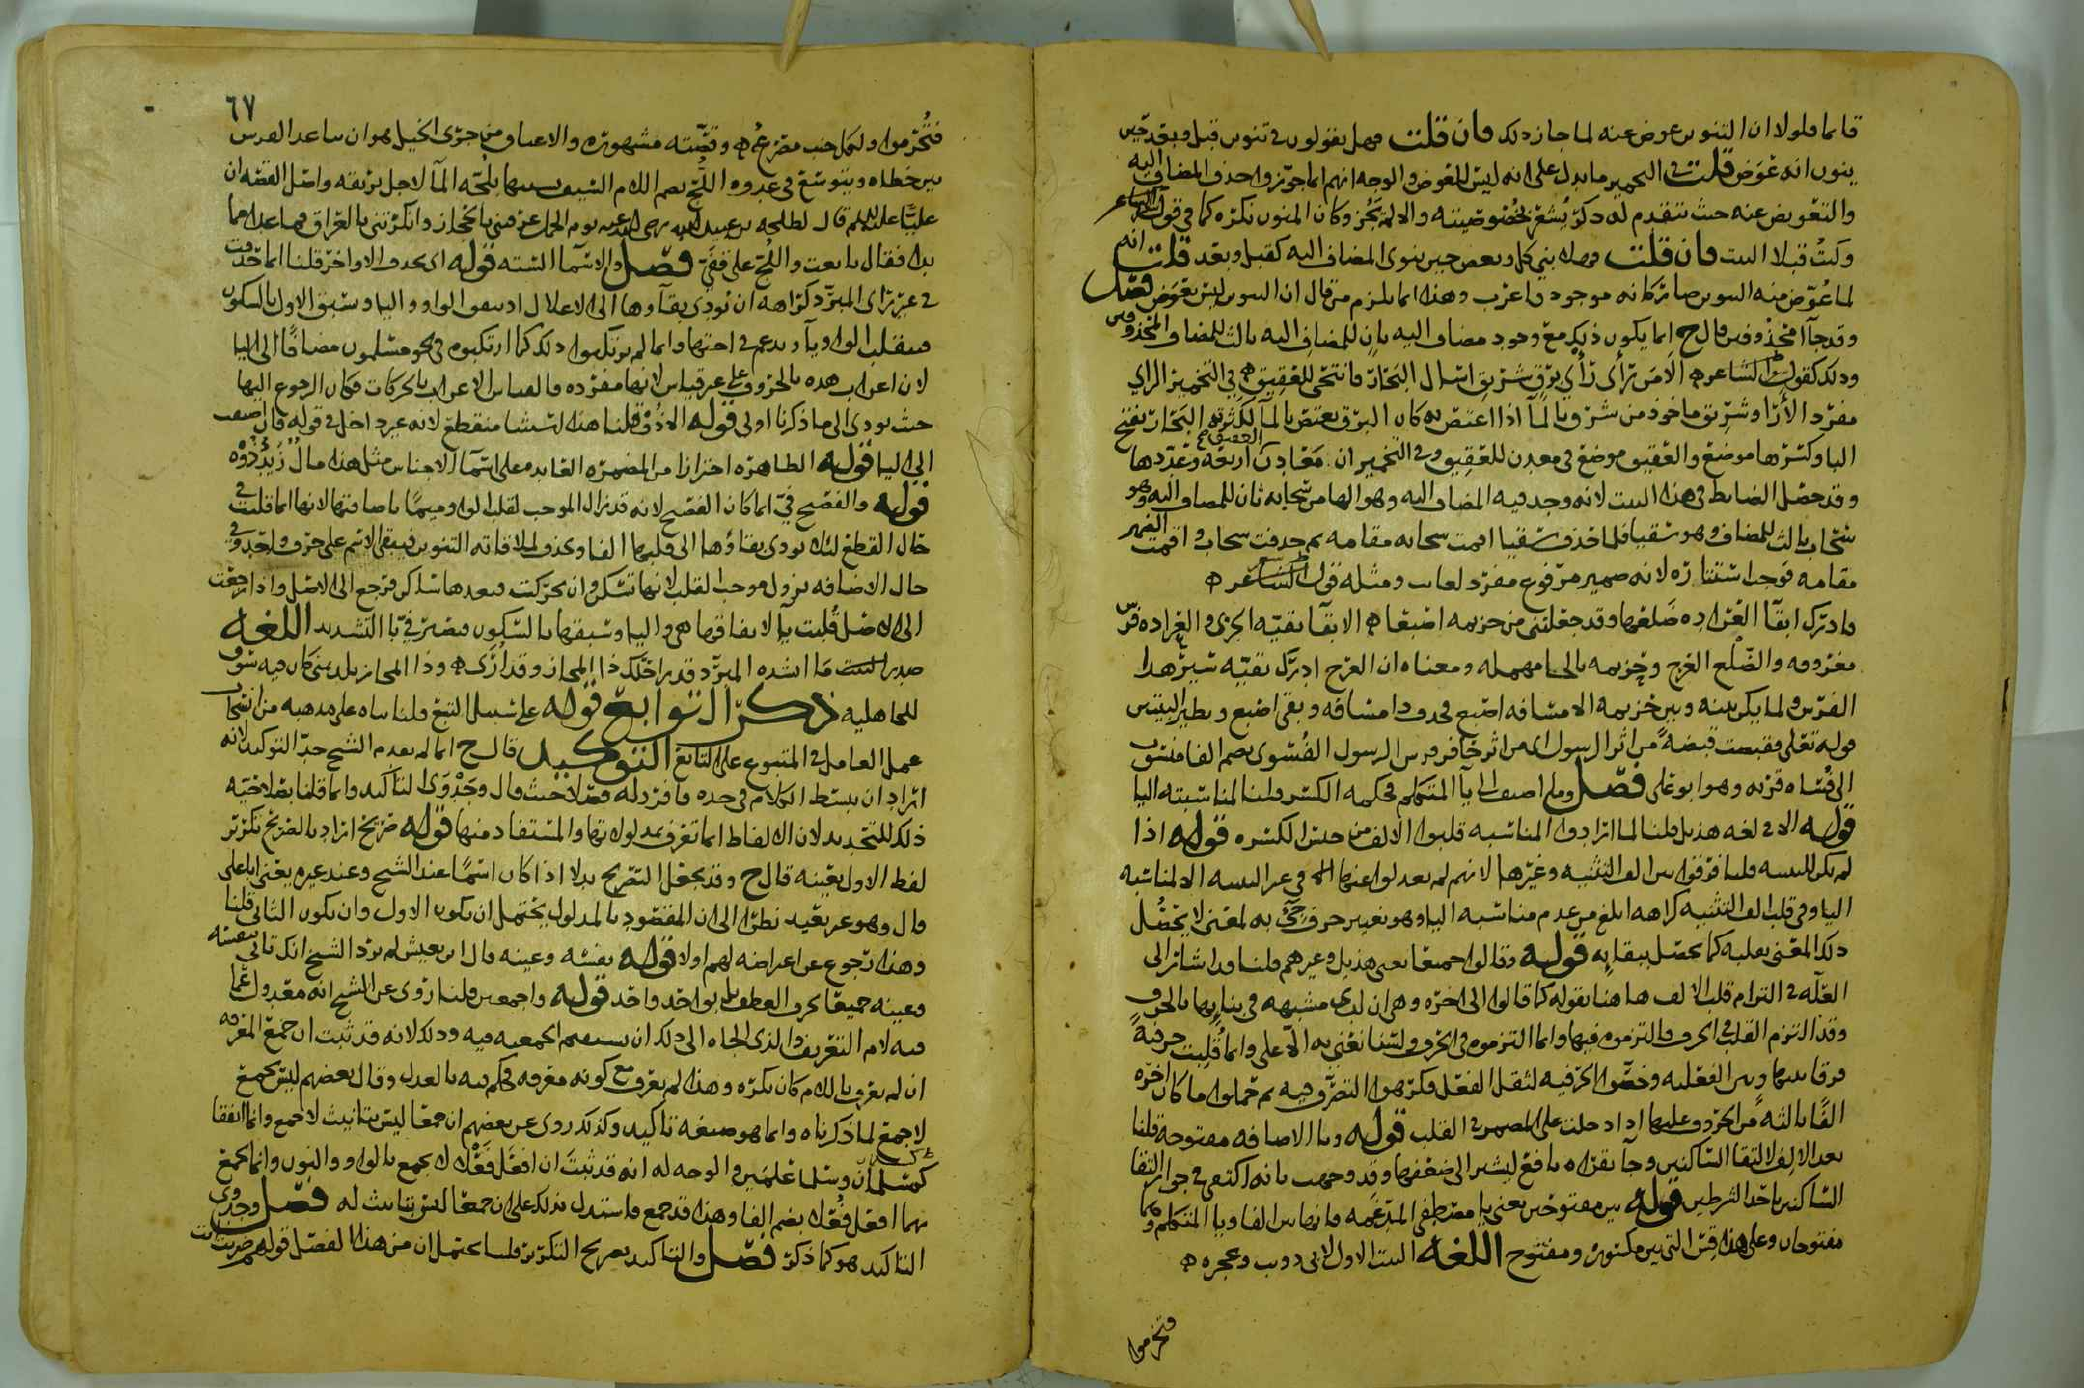 قائما فلولا ان التنوين عوض عنه لما جاز ذلك فان قلت فهل يقولون في تنوين قبل وبعد حين
ينون انه عوض قلت في التخمير ما يدل على انه ليس للعوض والوجه انهم انما جوزوا حذف المضاف اليه
والتعويض عنه حيث تتقدم له ذكر يشعر بخصوصيته والا لم يجز وكان المنون نكرة كما في قول الشاعر
وكنت قبلا البيت فان قلت فهلا بني كل وبعض حين ينوى المضاف اليه كقبل وبعد قلت انه
لما عوض منه التنوين صار كانه موجود فاعرب وهذا انما يلزم من قال ان التنوين ليس بعوض فصل
وقد جاآ محذوفين قال ح انما يكون ذلك مع وجود مضاف اليه بان للمضاف اليه ثالث للمضاف المحذوفين
وذلك كقول الشاعر الا من رأى لي رأي برق شريق اسال البحار فانتحى للعقيق في التخمير الراي
مفرد الآراء وشريق ماخوذ من شرق بالماء اذا اغتص به كان البرق يغتص بالماء لكثرته البحار بفتح
الباء وكسرها موضع والعقيق موضع في معدن للعقيق وفي التخمير ان معادن العقيق اربعة وعددها
وقد حصل الضابط في هذا البيت لانه وجد فيه المضاف اليه وهو الهاء من سحابه ثان للمضاف اليه وهو
سحاب ثالث للمضاف وهو سقيا فلما حذف سقيا اقيمت سحابه مقامه ثم حذفت سحاب واقيمت الضمير
مقامه فوجب استتاره لانه ضمير مرفوع مفرد لغائب ومثله قول الشاعر
فادرك ابقاء العرادة ضلعها وقد جعلتني من حزيمة اصبعا الابقاء بقية الجري والعرادة فرس
معروفه والضلع العرج وحزيمه بالحاء مهمله ومعناه ان العرج ادرك بقية سير هذا
الفرس ولما يكن بينه وبين حزيمه الا مسافه اصبع فحذف ذا مسافة وبقي اصبع ونظير البيتين
قوله تعالى فقبضت قبضة من اثر الرسول اي من اثر حافر فرس الرسول الفسوي بضم الفاء منسوب
الى فساء قرية وهو ابو علي فصل وما اضيف الى ياء المتكلم فحكمه الكسر قلنا لمناسبته الياء
قوله الا في لغه هذيل قلنا لما ارادوا المناسبه قلبوا الالف من جنس الكسره قوله اذا
لم يكن للتثنيه قلنا فرقوا بين الف التثنيه وغيرها لانهم لم يعدلوا عنها في غير التثنيه الا لمناسبة
الياء وفي قلب الف التثنيه كراهه ابلغ من عدم مناسبه الياء وهو تغيير حرف جيء به لمعنى لا يحصل
ذلك المعنى بقلبه كما يحصل ببقائه قوله وقالوا جميعا يعني هذيل وغيرهم قلنا قد اشار الى
العلة في التزام قلب الالف هاهنا بقوله كما قالوا الى اخره وهي ان لدى مشبهه في بنائها بالحرف
وقد التزم القلب في الحرف فالتزموه فيها وانما التزموه في الحروف ولسنا نعني به الا على وانما قلبت حرفية
فرقا بينها وبين الفعليه وخصوا الحرفيه لثقل الفعل فكرهوا التصرف فيه ثم حملوا ما كان اخره
الفا ثالثة من الحروف عليها اذا دخلت على المضمر في القلب قوله وياء الاضافه مفتوحة قلنا
بعد الالف لالتقاء الساكنين وجاء بقراءة نافع ليشير الى ضعفها وقد وجهت بانه اكتفي في جواز التقاء
الساكنين باحد الشرطين قوله بين مفتوحين يعني يا مصطفى المدغمه فانها بين الفاء وياء المتكلم وهما
مفتوحان وعلى هذا قس التي بين مكسور ومفتوح اللغه البيت الاول لابي ذؤيب وعجزه
فتخرموا
٦٧
فتُخُرِّموا ولكل جنب مصرع وقصته مشهورة والاعناق من جري الخيل هو ان يباعد الفرس
بين خطاه ويتوسع في عدوه اللج بضم اللام السيف تشبيها بلجة الماء لاجل بريقه واصل القصه ان
عليا عليلم قال لطلحه بن عبيد الله رضي الله عنه يوم الجمل عرفتني بالحجاز وانكرتني بالعراق فما عدا مما
بدا فقال بايعت واللج على قفي فصل والاسماء السته قوله اي بحذف الاواخر قلنا انما حذفت
في غير راي المبرد كراهه ان تؤدي بقاؤها الى الاعلال اذ يتفق الواو والياء وسبق الاول بالسكون
فينقلب الواو ياء ويدغم في اختها وانما لم يرتكبوا ذلك كما ارتكبوه في نحو مسلمون مضافا الى الياء
لان اعراب هذه بالحروف على غير قياس لانها مفرده فالقياس الاعراب بالحركات فكان الرجوع اليها
حيث يؤدي الى ما ذكرنا اولى قوله الا ذو قلنا هذا استثناء منقطع لانه غير داخل في قوله فان اضيف
الى الياء قوله الظاهره احترازا من المضمره العائده على اسماء الاجناس مثل هذا مال زيد ذووه
قوله والفصيح في انما كان الفصيح لانه قد زال الموجب لقلب الواو ميما باضافتها لانها انما قلبت في
حال القطع لئلا يؤدي بقاؤها الى قلبها الفا وحذف لملاقاته التنوين فيبقى الاسم على حرف واحد وفي
حال الاضافه يزول موجب القلب لانها تسكن وان تحركت فبعدها ساكن فترجع الى الاصل واذا رجعت
الى الاصل قلبت ياء لاتفاقها هي والياء وسبقها بالسكون فيصير في بالتشديد اللغه
صدر البيت ما انشده المبرد قدر احلك ذا المجاز وقد ارى وذا المجاز بلد بمنى كان فيه سوق
للجاهليه ذكر التوابع قوله على سبيل التبع قلنا بناه على مذهبه من انسحاب
عمل العامل في المتبوع على التابع التوكيد قال ح انما لم يقدم الشيخ حد التوكيد لانه
اراد ان يبسط الكلام في حده فافرد له فصلا حيث قال وجدوى التاكيد وانما قلنا بصلاحية
ذلك للتحديد لان الالفاظ انما تعرف بمدلولاتها والمستفاد منها قوله صريح اراد بالصريح تكرير
لفظ الاول بعينه قال ح وقد يجعل التصريح بدلا اذا كان اسما عند الشيخ وعند غيره يعني ابا علي
قال وهو غير بعيد نظرا الى ان المقصود بالمدلول يحتمل ان يكون الاول وان يكون الثاني قلنا
وهذا رجوع عن اعتراضه لهم اولا قوله نفسه وعينه قال ابن يعيش لم يرد الشيخ انك تاتي بنفسه
وعينه جميعا بحرف العطف بل بواحد واحد قوله واجمعين قلنا روي عن الشيخ انه معدول عما
فيه لام التعريف والذي الجاه الى ذلك ان يستقيم الجمعيه فيه وذلك لانه قد ثبت ان جمع المعرفه
ان لم يعرف باللام كان نكره وهذا لم يعرف مع كونه معرفه فحكم فيه بالعدل وقال بعضهم ليس بجمع
لاجمع لما ذكرناه وانما هو صيغه تاكيد وكذلك روي عن بعضهم ان جمعاء ليس بتانيث لاجمع وانما اتفقا
كسلمان وسلمى علمين والوجه له انه قد ثبت ان افعل فعلاء لا يجمع بالواو والنون وانما يجمع
بهما افعل فُعلى بضم الفاء وهذا قد جمع فاستدل بذلك على ان جمعاء ليس بتانيث له فصل وجدوى
التاكيد هو كما ذكر فصل والتاكيد بصريح التكرير قلنا يحتمل ان من هذا الفصل قولهم ضربت انت